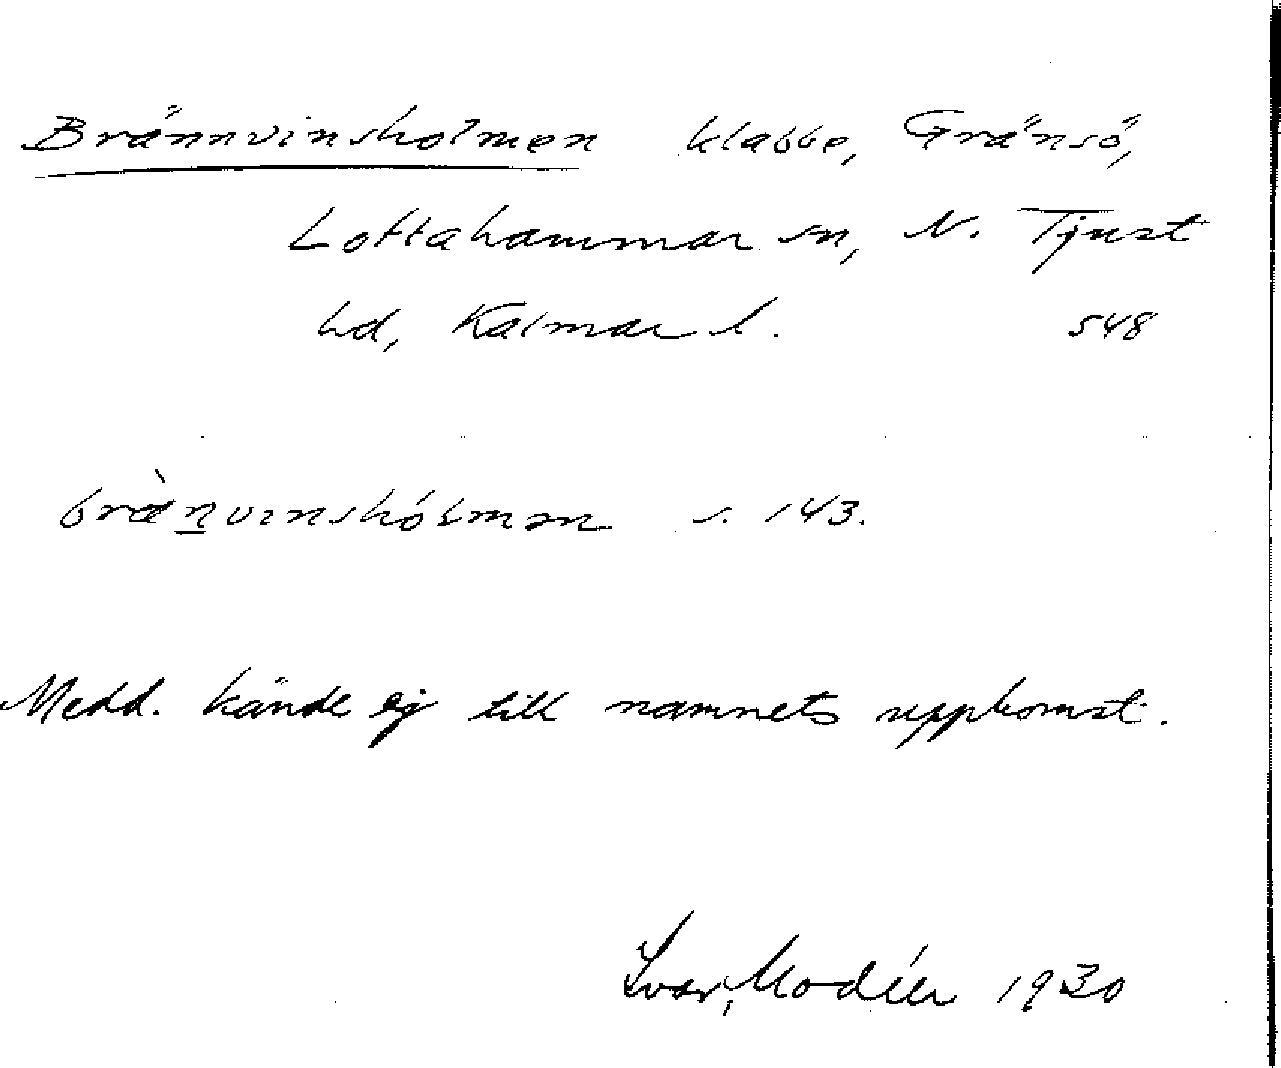 Brännvinsholmen klabbe, Gränsö,
Loftahammar sn, N. Tjust
hd, Kalmar l. 548
s. 143.
Medd. kände ej till namnets uppkomst.
Ivar Modéer 1930